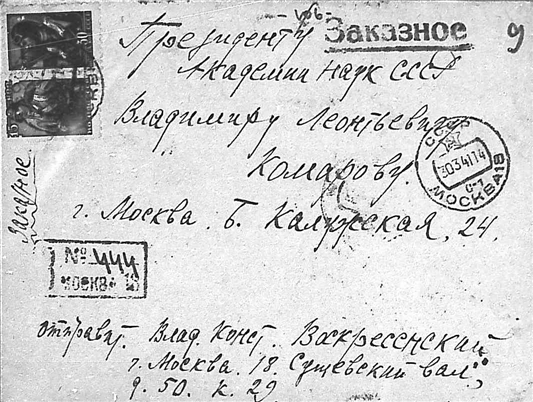 Заказное
9
Президенту
Академии наук СССР
Владимиру Леонтьевичу
Комарову.
г. Москва. Б. Калужская, 24.
Заказное
СССР
30341 14
МОСКВА 18
№ 444
МОСКВА 18
отправит. Влад. Конст. Воскресенский
г. Москва. 18. Сущевский вал,
д. 50. к. 29